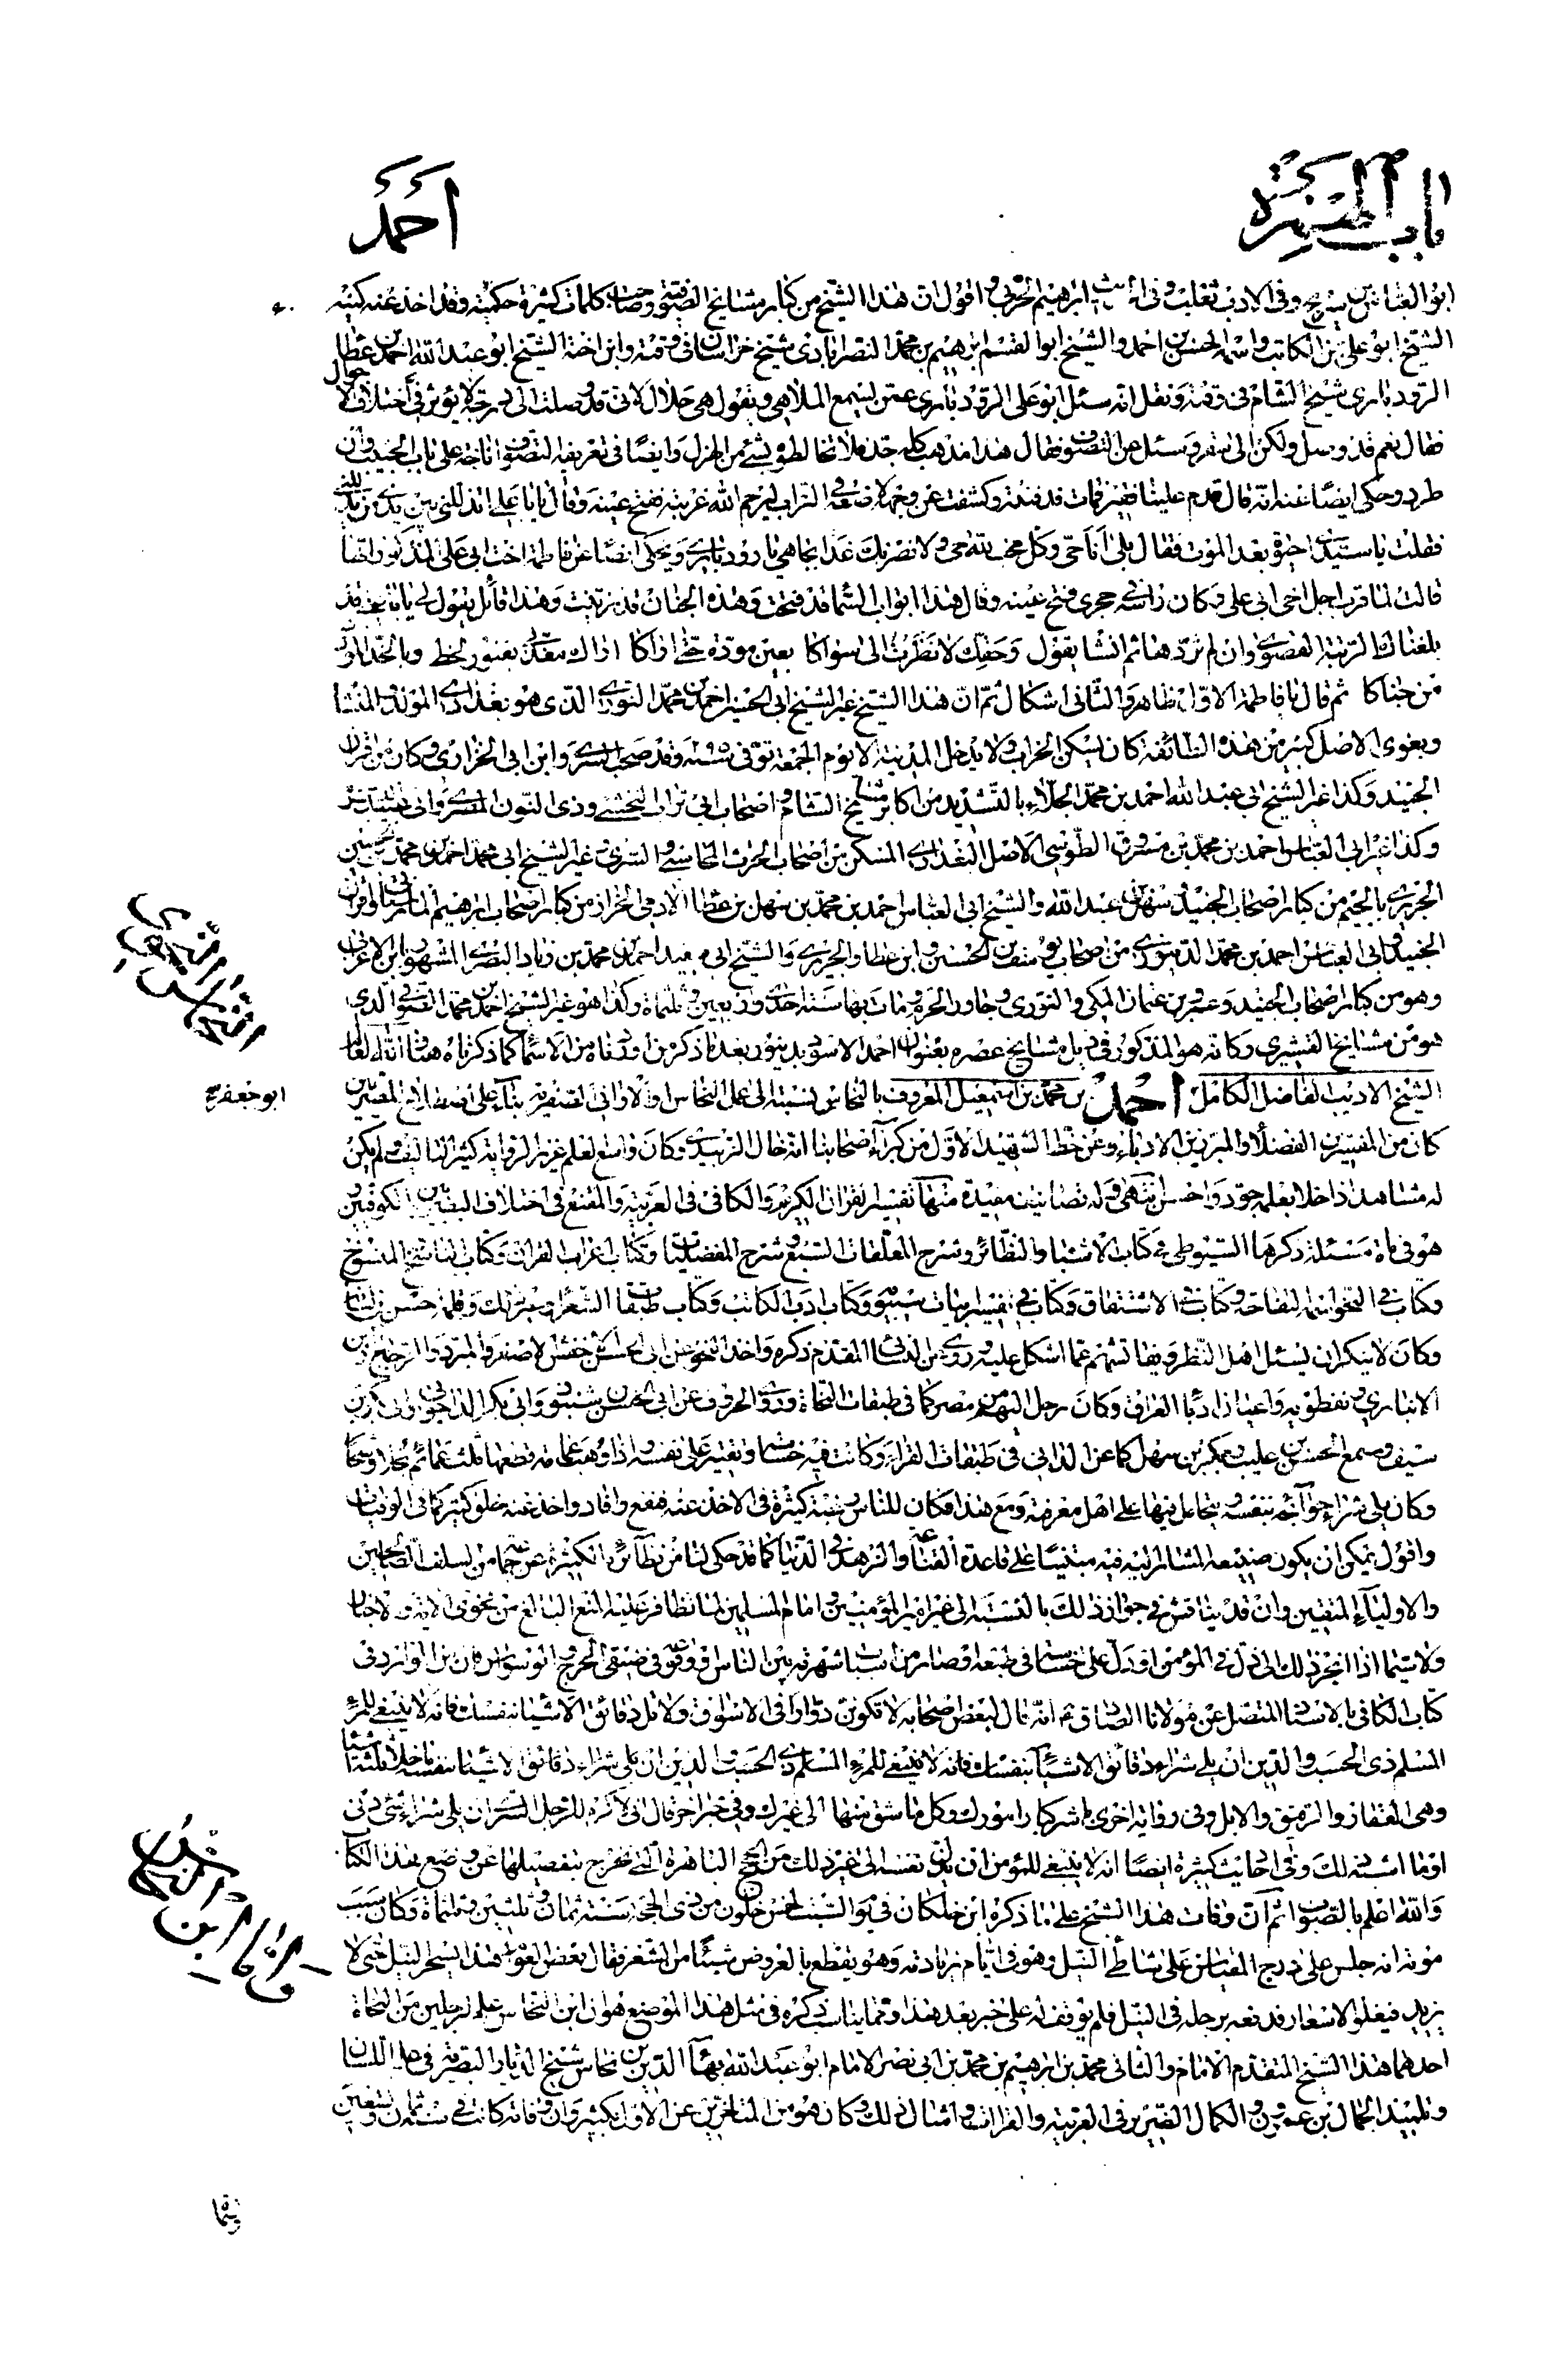 باب الهمزة
احمد
ابو العباس بن سريج وفى الادب ثعلب وفى ابراهيم الحربى و اقول ان هذا الشيخ من كبار مشايخ الصوفية وصاحب كلمات كثيرة حكمية وقد اخذ عنه كثير
الشيخ ابو على بن الكاتب واسمه الحسن بن احمد والشيخ ابو القسم ابرهيم بن محمد النصرابادى شيخ خراسان فى وقته وابن اخته الشيخ ابو عبد الله احمد بن عطا
الرودبارى شيخ الشام فى وقته ونقل انه سئل ابو على الرودبارى عمن يسمع الملاهى ويقول هى حلال لانى قد وصلت الى درجة لا يؤثر فى اختلاف الاحوال
فقال نعم قد وصل ولكن الى سقر وسئل عن التصوف فقال هذا مذهب كله جد فلا تخالطوه بشئ من الهزل وايضا فى تعريفه التصوف اناخة على باب الحبيب وان
طرد وحكى ايضا عنه انه قال قدم علينا فقير فمات فدفنته وكشفت عن وجهه لاضعه فى التراب ليرحم الله غربته ففتح عينيه وقال يا با على اتذللنى بين يدى من يدللنى
فقلت يا سيدى احيوة بعد الموت فقال بلى انا حى وكل محب لله حى ولانصرنك غدا بجاهى يا رودبارى ويحكى ايضا عن فاطمة اخت ابى على المذكور انها
قالت لما قرب اجل اخى ابى على وكان راسه فى حجرى فتح عينيه وقال هذا ابواب السما قد فتحت وهذه الجنان قد زينت وهذا قائل يقول لى يا با على قد
بلغناك الرتبة القصوى وان لم تردها ثم انشا يقول وحقك لا نظرت الى سواكا بعين مودة حتى اراكا اراك معذبى بفتور لحظ وبالخد المورد
من جناكا ثم قال يا فاطمة الاول ظاهر والثانى اشكال ثم ان هذا الشيخ غير الشيخ ابى الحسين احمد بن محمد النورى الذى هو بغدادى المولد والمنشا
وبغوى الاصل كبير من هذه الطائفة كان يسكن الخراب ولا يدخل المدينة الا يوم الجمعة توفى سنة وقد صحب السرى وابن ابى الحوارى وكان من اقران
الجنيد وكذا غير الشيخ ابى عبد الله احمد بن محمد الجلاء بالتشديد من اكابر مشايخ الشام و اصحاب ابى تراب النخشبى وذى النون المصرى وابى عبيد البسرى
وكذا غير ابى العباس احمد بن محمد بن مسروق الطوسى الاصل البغدادى المسكن من اصحاب الحرث المحاسبى والسرى وغير الشيخ ابى محمد احمد بن محمد بن حسين
الجريرى بالجيم من كبار اصحاب الجنيد وسهل بن عبد الله والشيخ ابى العباس احمد بن محمد بن سهل بن عطا الادمى الخراز من كبار اصحاب ابرهيم المارستانى واقران
الجنيد وابى العباس احمد بن محمد الدينورى من اصحاب يوسف بن الحسين وابن عطا والجريرى والشيخ ابى سعيد احمد بن محمد بن زياد البصرى المشهور بابن الاعرابى
وهو من كبار اصحاب الجنيد وعمرو بن عثمان المكى والنورى وجاور الحرم ومات بها سنة احدى واربعين وثلثمائة وكذا هو غير الشيخ احمد بن محمد الصوفى الذى
هو من مشايخ القشيرى وكانه هو المذكور فى ذيل مشايخ عصره بعنوان احمد الاسود بدينور بعد ما ذكر من ورد فاه من الاسما كما ذكرناه هنا ان شاء الله تعالى
الشيخ الاديب الفاضل الكامل احمد بن محمد بن اسمعيل المعروف بالنحاس نسبة الى عمل النحاس او الاوانى الصفرية بناء على اصطلاح المصريين
كان من المفسرين الفضلا والمبرزين الادباء وعن خط الشهيد الاول من كبراء اصحابنا انه خال الزبيدى وكان واسع العلم غزير الرواية كثير التاليف ولم يكن
له مشاهدة اذا خلا بعلمه جود واحسن انتهى وله تصانيف مفيدة منها تفسير القران الكريم والكافى فى العربية والمقنع فى اختلاف البصريين والكوفيين
هو فى مسئلة ذكرها السيوطى فى كتاب الاشباه والنظائر وشرح المعلقات السبع وشرح المفضليات وكتاب اعراب القران وكتاب الناسخ والمنسوخ
وكتاب فى النحو اسمه التفاحة وكتاب فى الاشتقاق وكتاب فى تفسير ابيات سيبويه وكتاب ادب الكاتب وكتاب طبقات الشعراء وغير ذلك وقلمه احسن من لسانه
وكان لا ينكر ان يسئل اهل النظر ويفاتشهم عما اشكل عليه وروى عن النسائى المقدم ذكره واخذ النحو عن ابى الحسن الاخفش الاصغر والمبرد والزجاج وابن
الانبارى ونفطويه واعيان ادبا العراق وكان رحل اليهم من مصر كما فى طبقات النحاة وروى الحروف عن ابى الحسن بن شنبوذ وابى بكر الداجونى وابى بكر بن
سيف وسمع الحسن بن غليب وبكر بن سهل كما عن الدانى فى طبقات القراء وكانت فيه خساسة وتقتير على نفسه اذا وهب عمامة قطعها ثلث عمائم بخلا وشحا
وكان يلى شراء حوائجه بنفسه ويتحامل فيها على اهل معرفته ومع هذا فكان للناس رغبة كثيرة فى الاخذ عنه فنفع وافاد واخذ عنه خلق كثير كما فى الوفيات
واقول يمكن ان يكون صنيعه المشار اليه فيه مبتنيا على قاعدة القناعة والزهد فى الدنيا كما قد حكى لنا من نظائره الكثيرة عن جماعة من السلف الصالحين
والاولياء المتقين وان قد يناقش فى جواز ذلك بالنسبة الى غير امير المؤمنين وامام المسلمين لما تظافر عليه المنع البالغ من نحو فى الاية والاخبار
ولا سيما اذا انجر ذلك الى ذل فى المؤمن او دل على خساسة فى طبعه او صار من اسباب شهرته بين الناس او وقوعه فى ضيق الحرج والوسواس فان من الوارد فى
كتاب الكافى بالاسناد المتصل عن مولانا الصادق ع انه قال لبعض اصحابه لا تكونن دوارا فى الاسواق ولا تلى دقائق الاشياء بنفسك فانه لا ينبغى للمرء
المسلم ذى الحسب والدين ان يلى شراء دقائق الاشياء بنفسك فانه لا ينبغى للمرء المسلم ذى الحسب والدين ان يلى شراء دقائق الاشياء بنفسه ما خلا ثلثة اشياء
وهى العقار والرقيق والابل وفى رواية اخرى باشر كبار امورك وكل ما شق منها الى غيرك وفى خبر اخر قال انى لاكره للرجل السرى ان يلى شراء شئ دنى
او ما اشبه ذلك وفى احاديث كثيرة ايضا انه لا ينبغى للمؤمن ان يذل نفسه الى غير ذلك من الحجج الباهرة التى نخرج بتفصيلها عن وضع هذا الكتاب
والله اعلم بالصواب ثم ان وفات هذا الشيخ على ما ذكره ابن خلكان فى يوم السبت لخمس خلون من ذى الحجة سنة ثمان وثلثين وثلثمائة وكان سبب
موته انه جلس على درج المقياس على شاطئ النيل وهو فى ايام زيادته وهو يقطع بالعروض شيئا من الشعر فقال بعض العوام هذا يسحر النيل حتى لا
يزيد فيغلو الاسعار فدفعه برجله فى النيل فلم يوقف له على خبر بعد هذا ومما يناسب ذكره فى مثل هذا الموضع هو ان ابن النحاس علم لرجلين من النحاة
احدهما هذا الشيخ المتقدم الامام والثانى محمد بن ابرهيم بن محمد بن ابى نصر الامام ابو عبد الله بهاء الدين بن نحاس شيخ الديار المصرية فى علم اللسان
وتلميذ الجمال بن عمرون والكمال الضرير فى العربية والقراات وامثال ذلك وكان هو من المتاخرين عن الاول بكثير وان وفاته كانت فى سنة ثمان وتسعين
النحاس النحوى
ابو جعفر
واما ابن النحاس